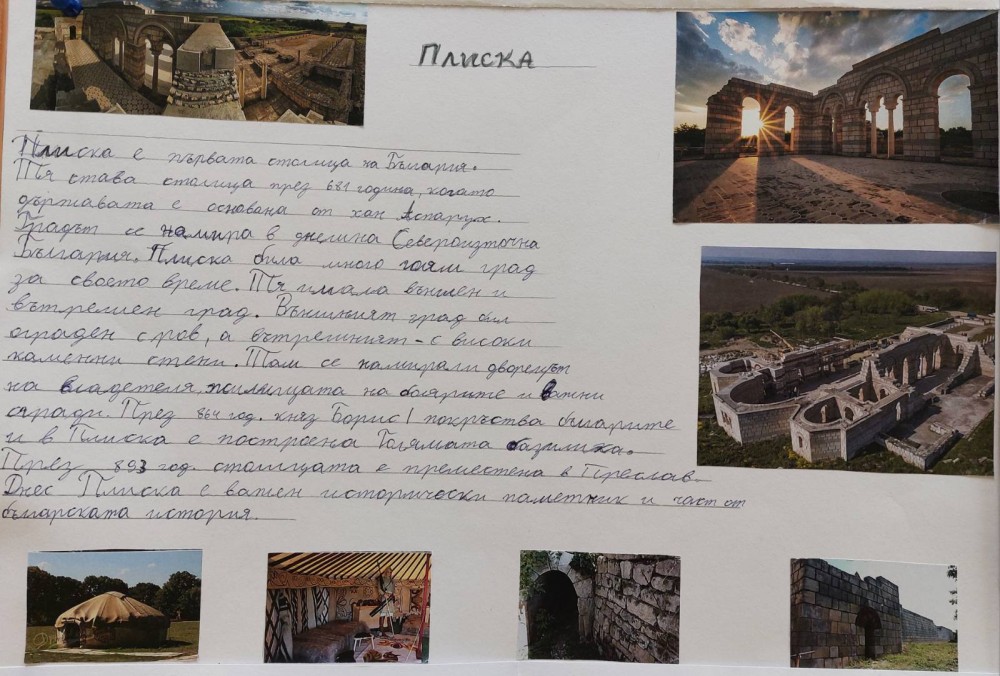 Плиска
Плиска е първата столица на България.
Тя става столица през 681 година, когато
държавата е основана от хан Аспарух.
Градът се намира в днешна Североизточна
България. Плиска била много голям град
за своето време. Тя имала външен и
вътрешен град. Външният град бил
ограден с ров, а вътрешният - с високи
каменни стени. Там се намирали дворецът
на владетеля, жилищата на боярите и важни
сгради. През 864 год. княз Борис I покръства българите
и в Плиска е построена Голямата базилика.
През 893 год. столицата е преместена в Преслав.
Днес Плиска е важен исторически паметник и част от
българската история.